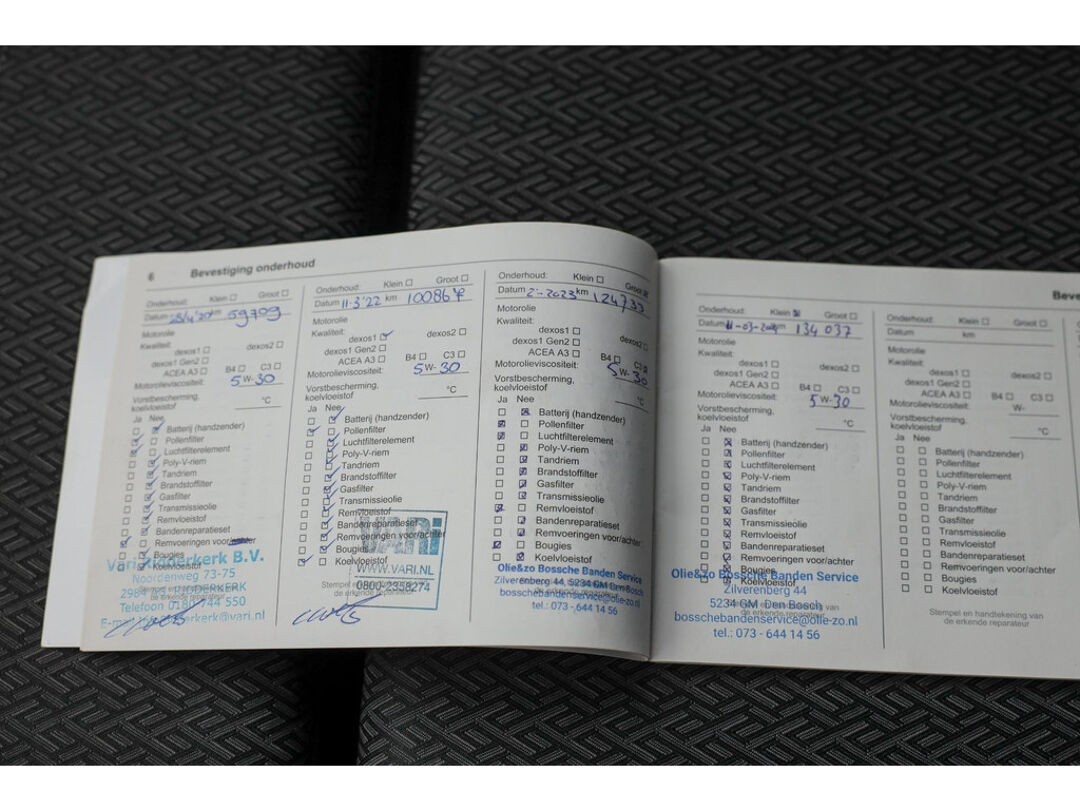 6 Bevestiging onderhoud
Onderhoud: Klein Groot
Datum km 59709
Motorolie
Kwaliteit:
dexos1 dexos2
dexos1 Gen2
ACEA A3 B4 C3
Motorolieviscositeit: 5W-30
Vorstbescherming,
koelvloeistof °C
Ja Nee
Batterij (handzender)
Pollenfilter
Luchtfilterelement
Poly-V-riem
Tandriem
Brandstoffilter
Gasfilter
Transmissieolie
Remvloeistof
Bandenreparatieset
Remvoeringen voor/
Bougies
Koelvloeistof
Vari Ridderkerk B.V.
Noordenweg 73-75
RIDDERKERK
Telefoon 0180 744 550
Onderhoud: Klein Groot
Datum 11-3'22 km
Motorolie
Kwaliteit:
dexos1 dexos2
dexos1 Gen2
ACEA A3 B4 C3
Motorolieviscositeit: 5W-30
Vorstbescherming,
koelvloeistof °C
Ja Nee
Batterij (handzender)
Pollenfilter
Luchtfilterelement
Poly-V-riem
Tandriem
Brandstoffilter
Gasfilter
Transmissieolie
Remvloeistof
Bandenreparatieset
Remvoeringen voor/achter
Bougies
Koelvloeistof
VARI
WWW.VARI.NL
0800-2358274
Onderhoud: Klein Groot
Datum 2-2023 km 124733
Motorolie
Kwaliteit:
dexos1 dexos2
dexos1 Gen2
ACEA A3 B4 C3
Motorolieviscositeit: 5W-30
Vorstbescherming,
koelvloeistof °C
Ja Nee
Batterij (handzender)
Pollenfilter
Luchtfilterelement
Poly-V-riem
Tandriem
Brandstoffilter
Gasfilter
Transmissieolie
Remvloeistof
Bandenreparatieset
Remvoeringen voor/achter
Bougies
Koelvloeistof
Olie&zo Bossche Banden Service
Zilverenberg 44, 5234 GM Den Bosch
bosschebandenservice@olie-zo.nl
tel.: 073 - 644 14 56
Beve
Onderhoud: Klein Groot
Datum 11-03- km 134 037
Motorolie
Kwaliteit:
dexos1 dexos2
dexos1 Gen2
ACEA A3 B4 C3
Motorolieviscositeit: 5W-30
Vorstbescherming,
koelvloeistof °C
Ja Nee
Batterij (handzender)
Pollenfilter
Luchtfilterelement
Poly-V-riem
Tandriem
Brandstoffilter
Gasfilter
Transmissieolie
Remvloeistof
Bandenreparatieset
Remvoeringen voor/achter
Bougies
Koelvloeistof
Olie&zo Bossche Banden Service
Zilverenberg 44
5234 GM Den Bosch
bosschebandenservice@olie-zo.nl
tel.: 073 - 644 14 56
Onderhoud: Klein Groot
Datum km
Motorolie
Kwaliteit:
dexos1 dexos2
dexos1 Gen2
ACEA A3 B4 C3
Motorolieviscositeit: W-
Vorstbescherming,
koelvloeistof °C
Ja Nee
Batterij (handzender)
Pollenfilter
Luchtfilterelement
Poly-V-riem
Tandriem
Brandstoffilter
Gasfilter
Transmissieolie
Remvloeistof
Bandenreparatieset
Remvoeringen voor/achter
Bougies
Koelvloeistof
Stempel en handtekening van
de erkende reparateur